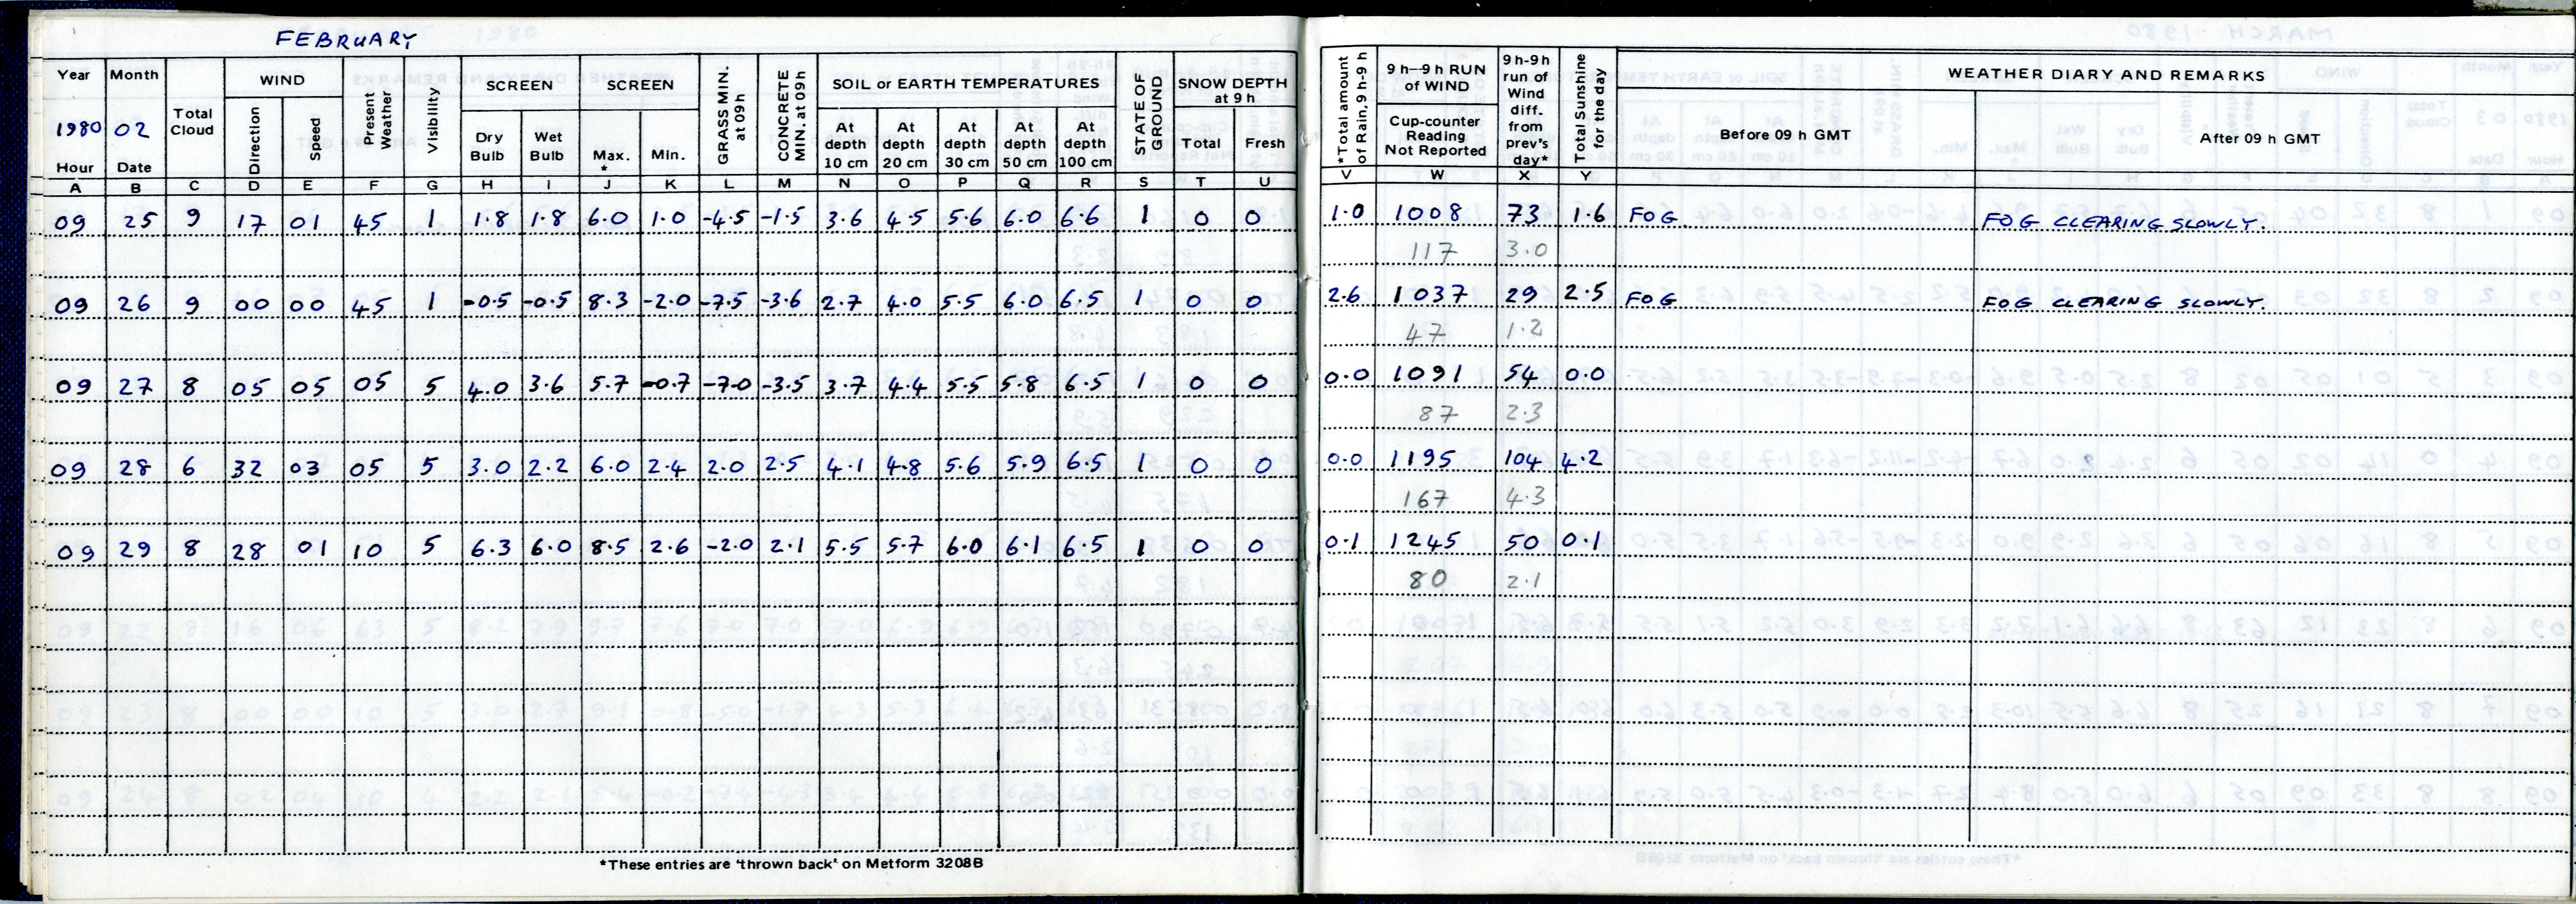 FEBRUARY
Year Month Total Cloud WIND Present Weather Visibility SCREEN SCREEN GRASS MIN. at 09h CONCRETE MIN. at 09h SOIL or EARTH TEMPERATURES STATE OF GROUND SNOW DEPTH at 9 h *Total amount of Rain, 9h-9h 9 h—9 h RUN of WIND 9 h-9h run of Wind diff. from prev's day* Total Sunshine for the day WEATHER DIARY AND REMARKS
1980 02 Direction Speed Dry Bulb Wet Bulb Max. * Min. At depth 10 cm At depth 20 cm At depth 30 cm At depth 50 cm At depth 100 cm Total Fresh Cup-counter Reading Not Reported Before 09 h GMT After 09 h GMT
Hour Date
A B C D E F G H I J K L M N O P Q R S T U V W X Y
09 25 9 17 01 45 1 1.8 1.8 6.0 1.0 -4.5 -1.5 3.6 4.5 5.6 6.0 6.6 1 0 0 1.0 1008 73 1.6 FOG FOG CLEARING SLOWLY.
117 3.0
09 26 9 00 00 45 1 -0.5 -0.5 8.3 -2.0 -7.5 -3.6 2.7 4.0 5.5 6.0 6.5 1 0 0 2.6 1037 29 2.5 FOG FOG CLEARING SLOWLY.
47 1.2
09 27 8 05 05 05 5 4.0 3.6 5.7 -0.7 -7.0 -3.5 3.7 4.4 5.5 5.8 6.5 1 0 0 0.0 1091 54 0.0
87 2.3
09 28 6 32 03 05 5 3.0 2.2 6.0 2.4 2.0 2.5 4.1 4.8 5.6 5.9 6.5 1 0 0 0.0 1195 104 4.2
167 4.3
09 29 8 28 01 10 5 6.3 6.0 8.5 2.6 -2.0 2.1 5.5 5.7 6.0 6.1 6.5 1 0 0 0.1 1245 50 0.1
80 2.1
*These entries are 'thrown back' on Metform 3208B